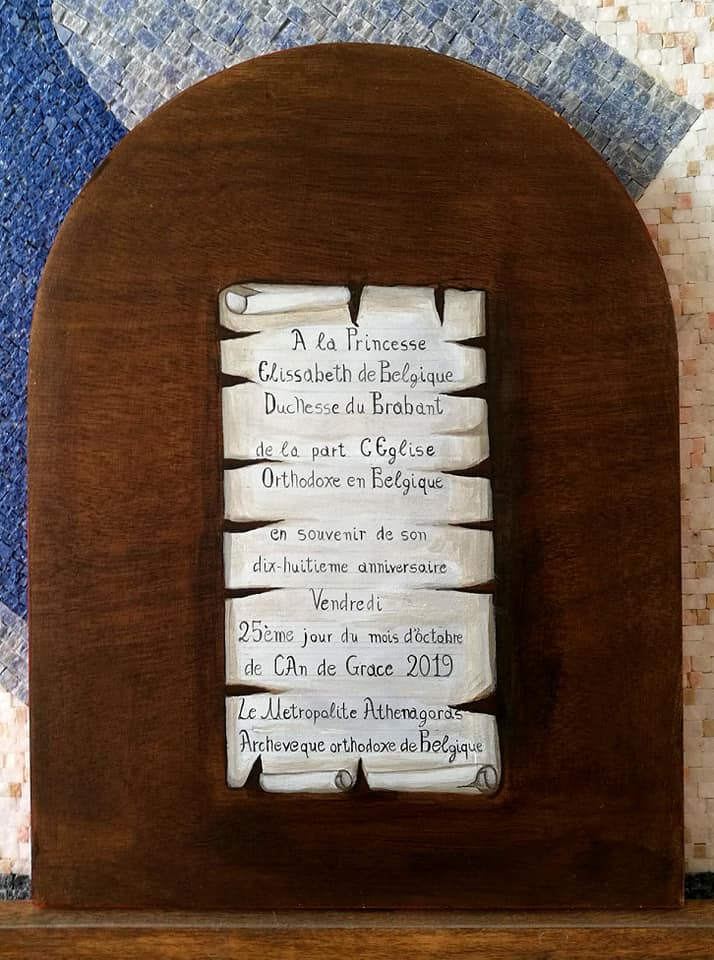 A la Princesse
Elissabeth de Belgique
Duchesse du Brabant
de la part CEglise
Orthodoxe en Belgique
en souvenir de son
dix-huitieme anniversaire
Vendredi
25ème jour du mois d'octobre
de CAn de Grace 2019
Le Metropolite Athenagoras
Archeveque orthodoxe de Belgique